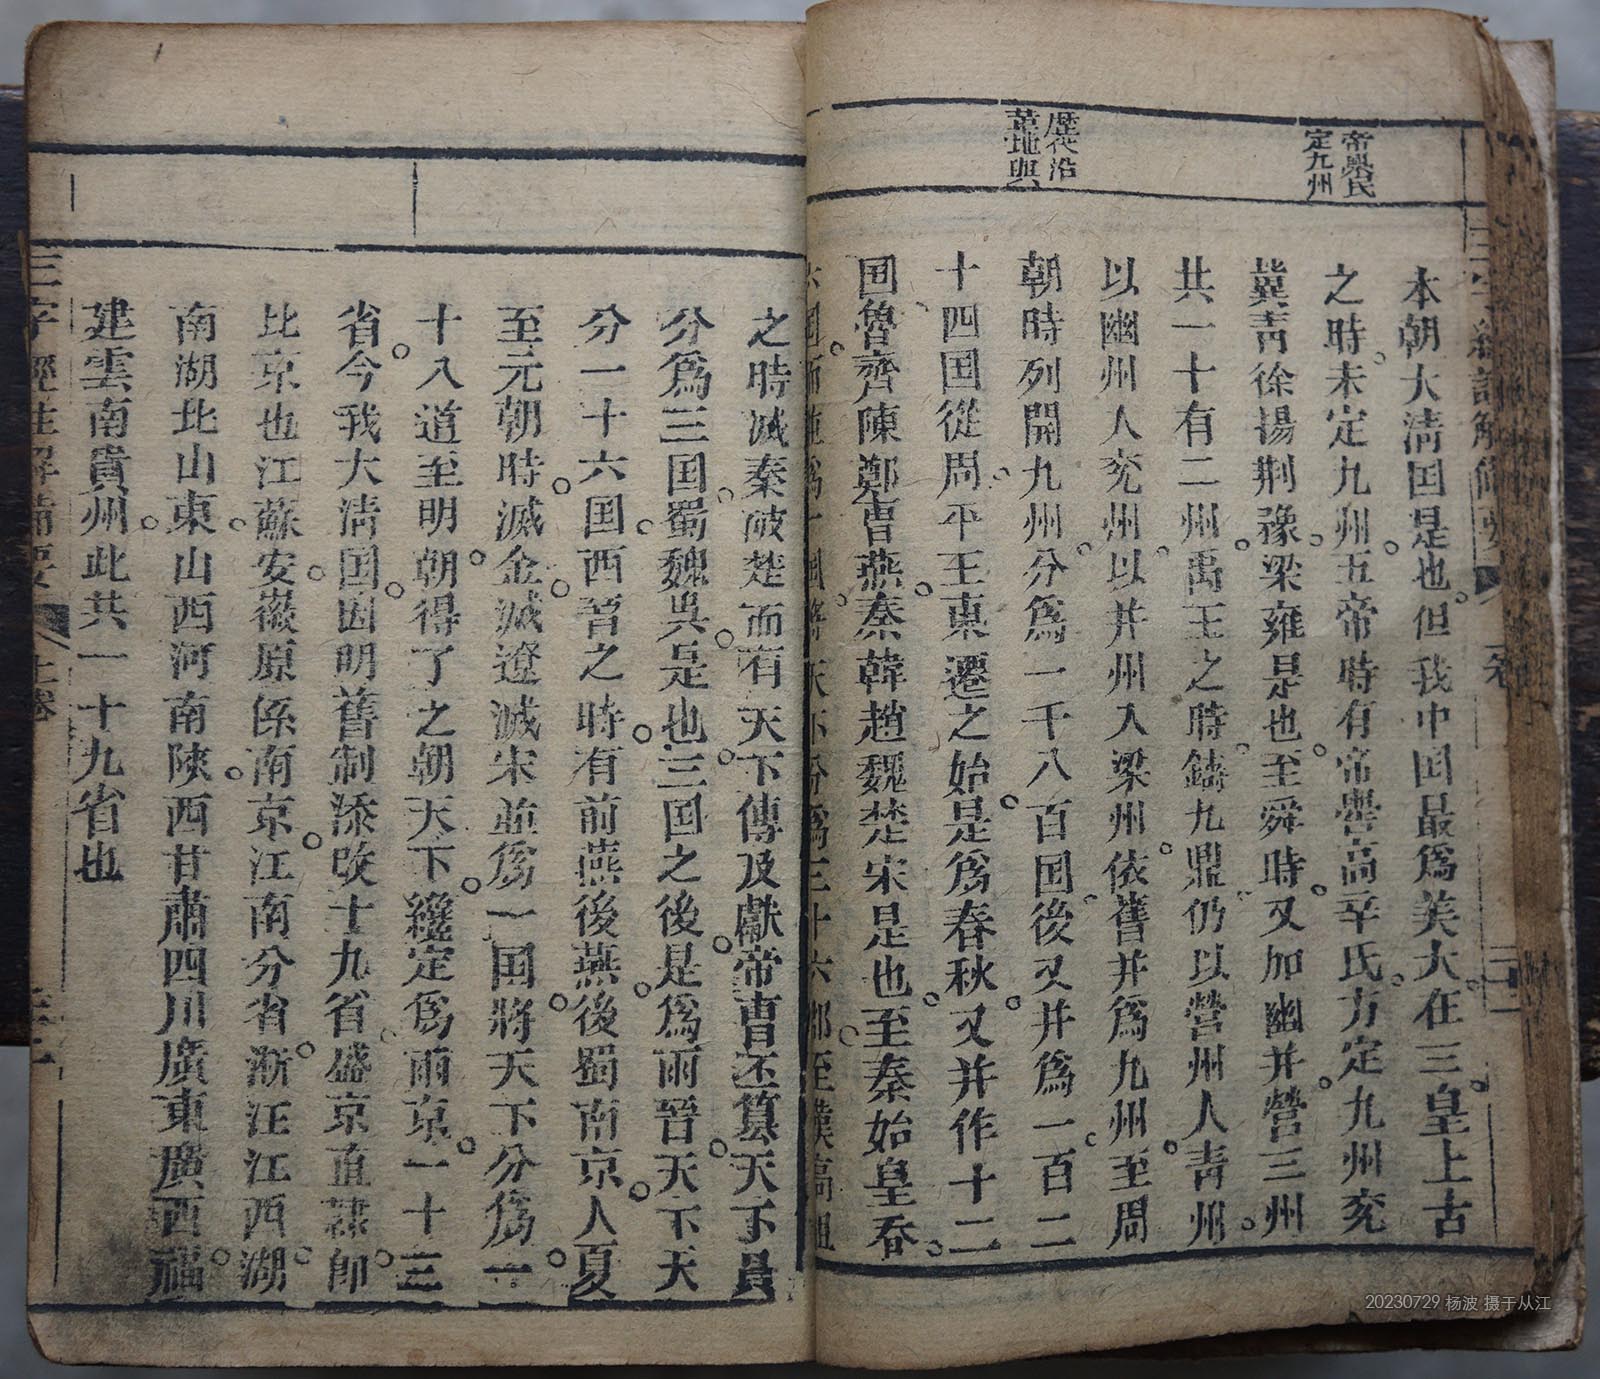 帝嚳氏
定九州
歷代沿
革地輿
本朝大清国是也但我中国最爲美大在三皇上古
之時未定九州五帝時有帝嚳高辛氏方定九州兖
冀青徐揚荆豫梁雍是也至舜時又加幽并營三州
共一十有二州禹王之時鑄九鼎仍以營州人青州
以幽州人兖州以并州入梁州依舊并爲九州至周
朝時列開九州分爲一千八百国後又并爲一百二
十四国從周平王東遷之始是爲春秋又并作十二
国魯齊陳鄭曹燕秦韓趙魏楚宋是也至秦始皇吞
六国而 爲一国將天下分爲三十六郡至漢高祖
之時滅秦破楚而有天下傳及獻帝曹丕篡天下員
分爲三国蜀魏吳是也三国之後是爲兩晉天下天
分一十六国西晋之時有前燕後燕後蜀南京人夏
至元朝時滅金滅遼滅宋並爲一国將天下分爲一
十入道至明朝得了之朝天下纔定爲兩京一十三
省今我大清国因明舊制添改十九省盛京直隸即
比京也江蘇安徽原係南京江南分省浙江江西湖
南湖北山東山西河南陝西甘肅四川廣東廣西福
建雲南貴州此共一十九省也
三字經註解備要
上卷
20230729 杨波 摄于从江